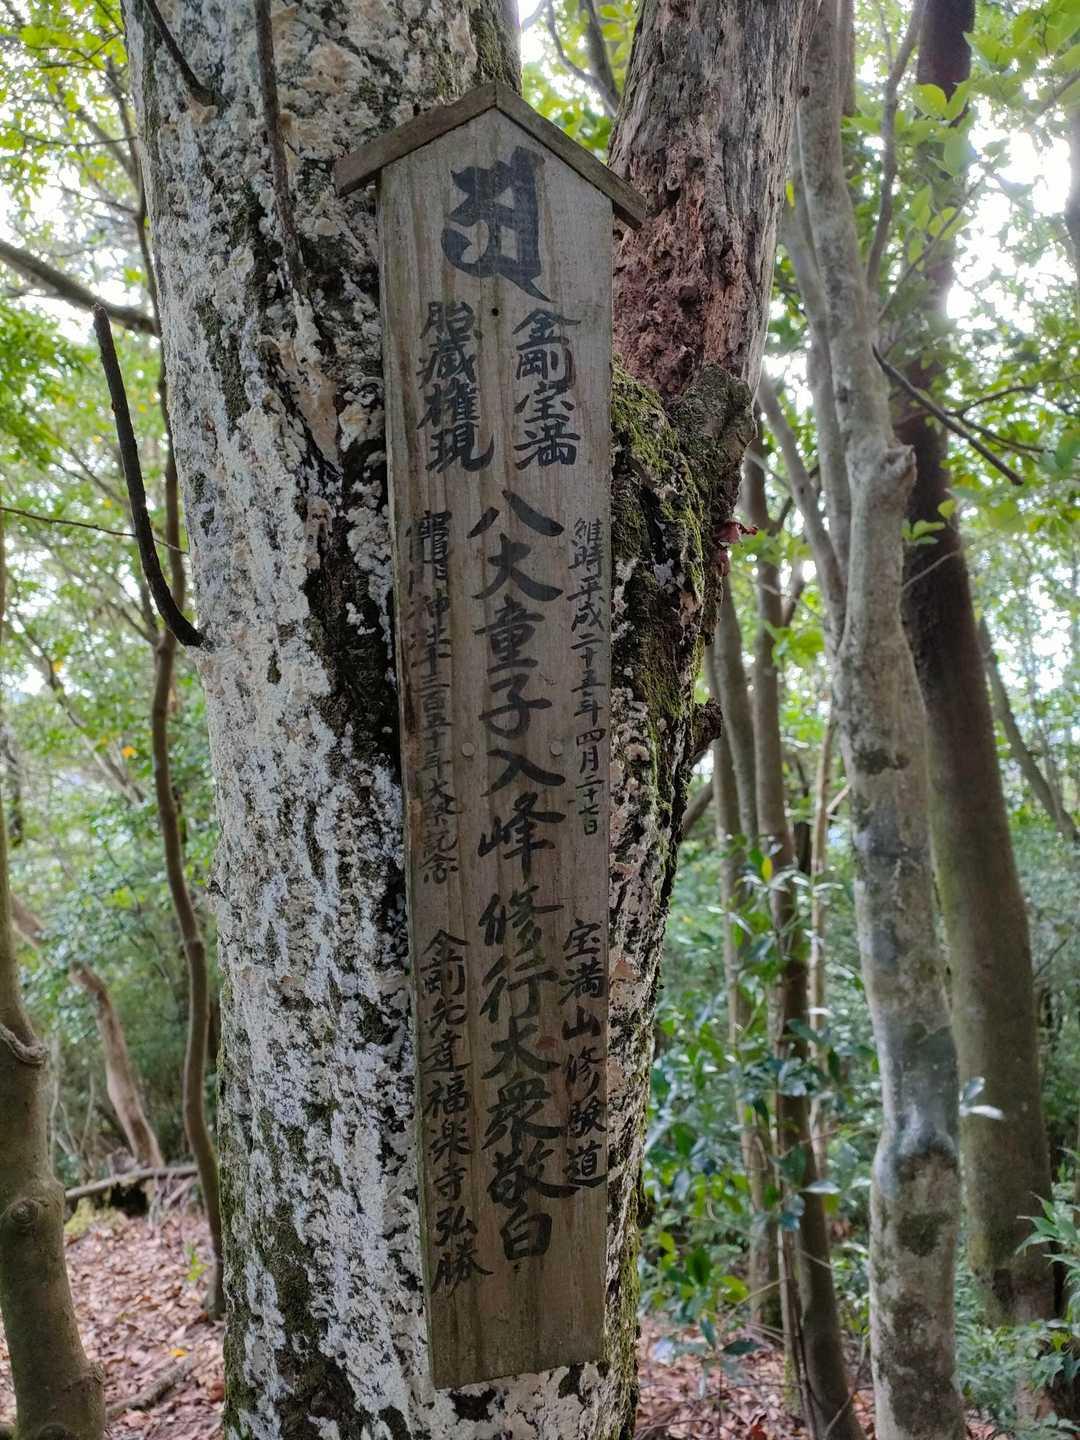 金剛宝満
胎蔵権現
維時平成二十五年四月二十七日
宝満山修験道
八大童子入峰修行大衆敬白
竈門神社千三百五十年大祭記念
金剛先達福楽寺弘勝